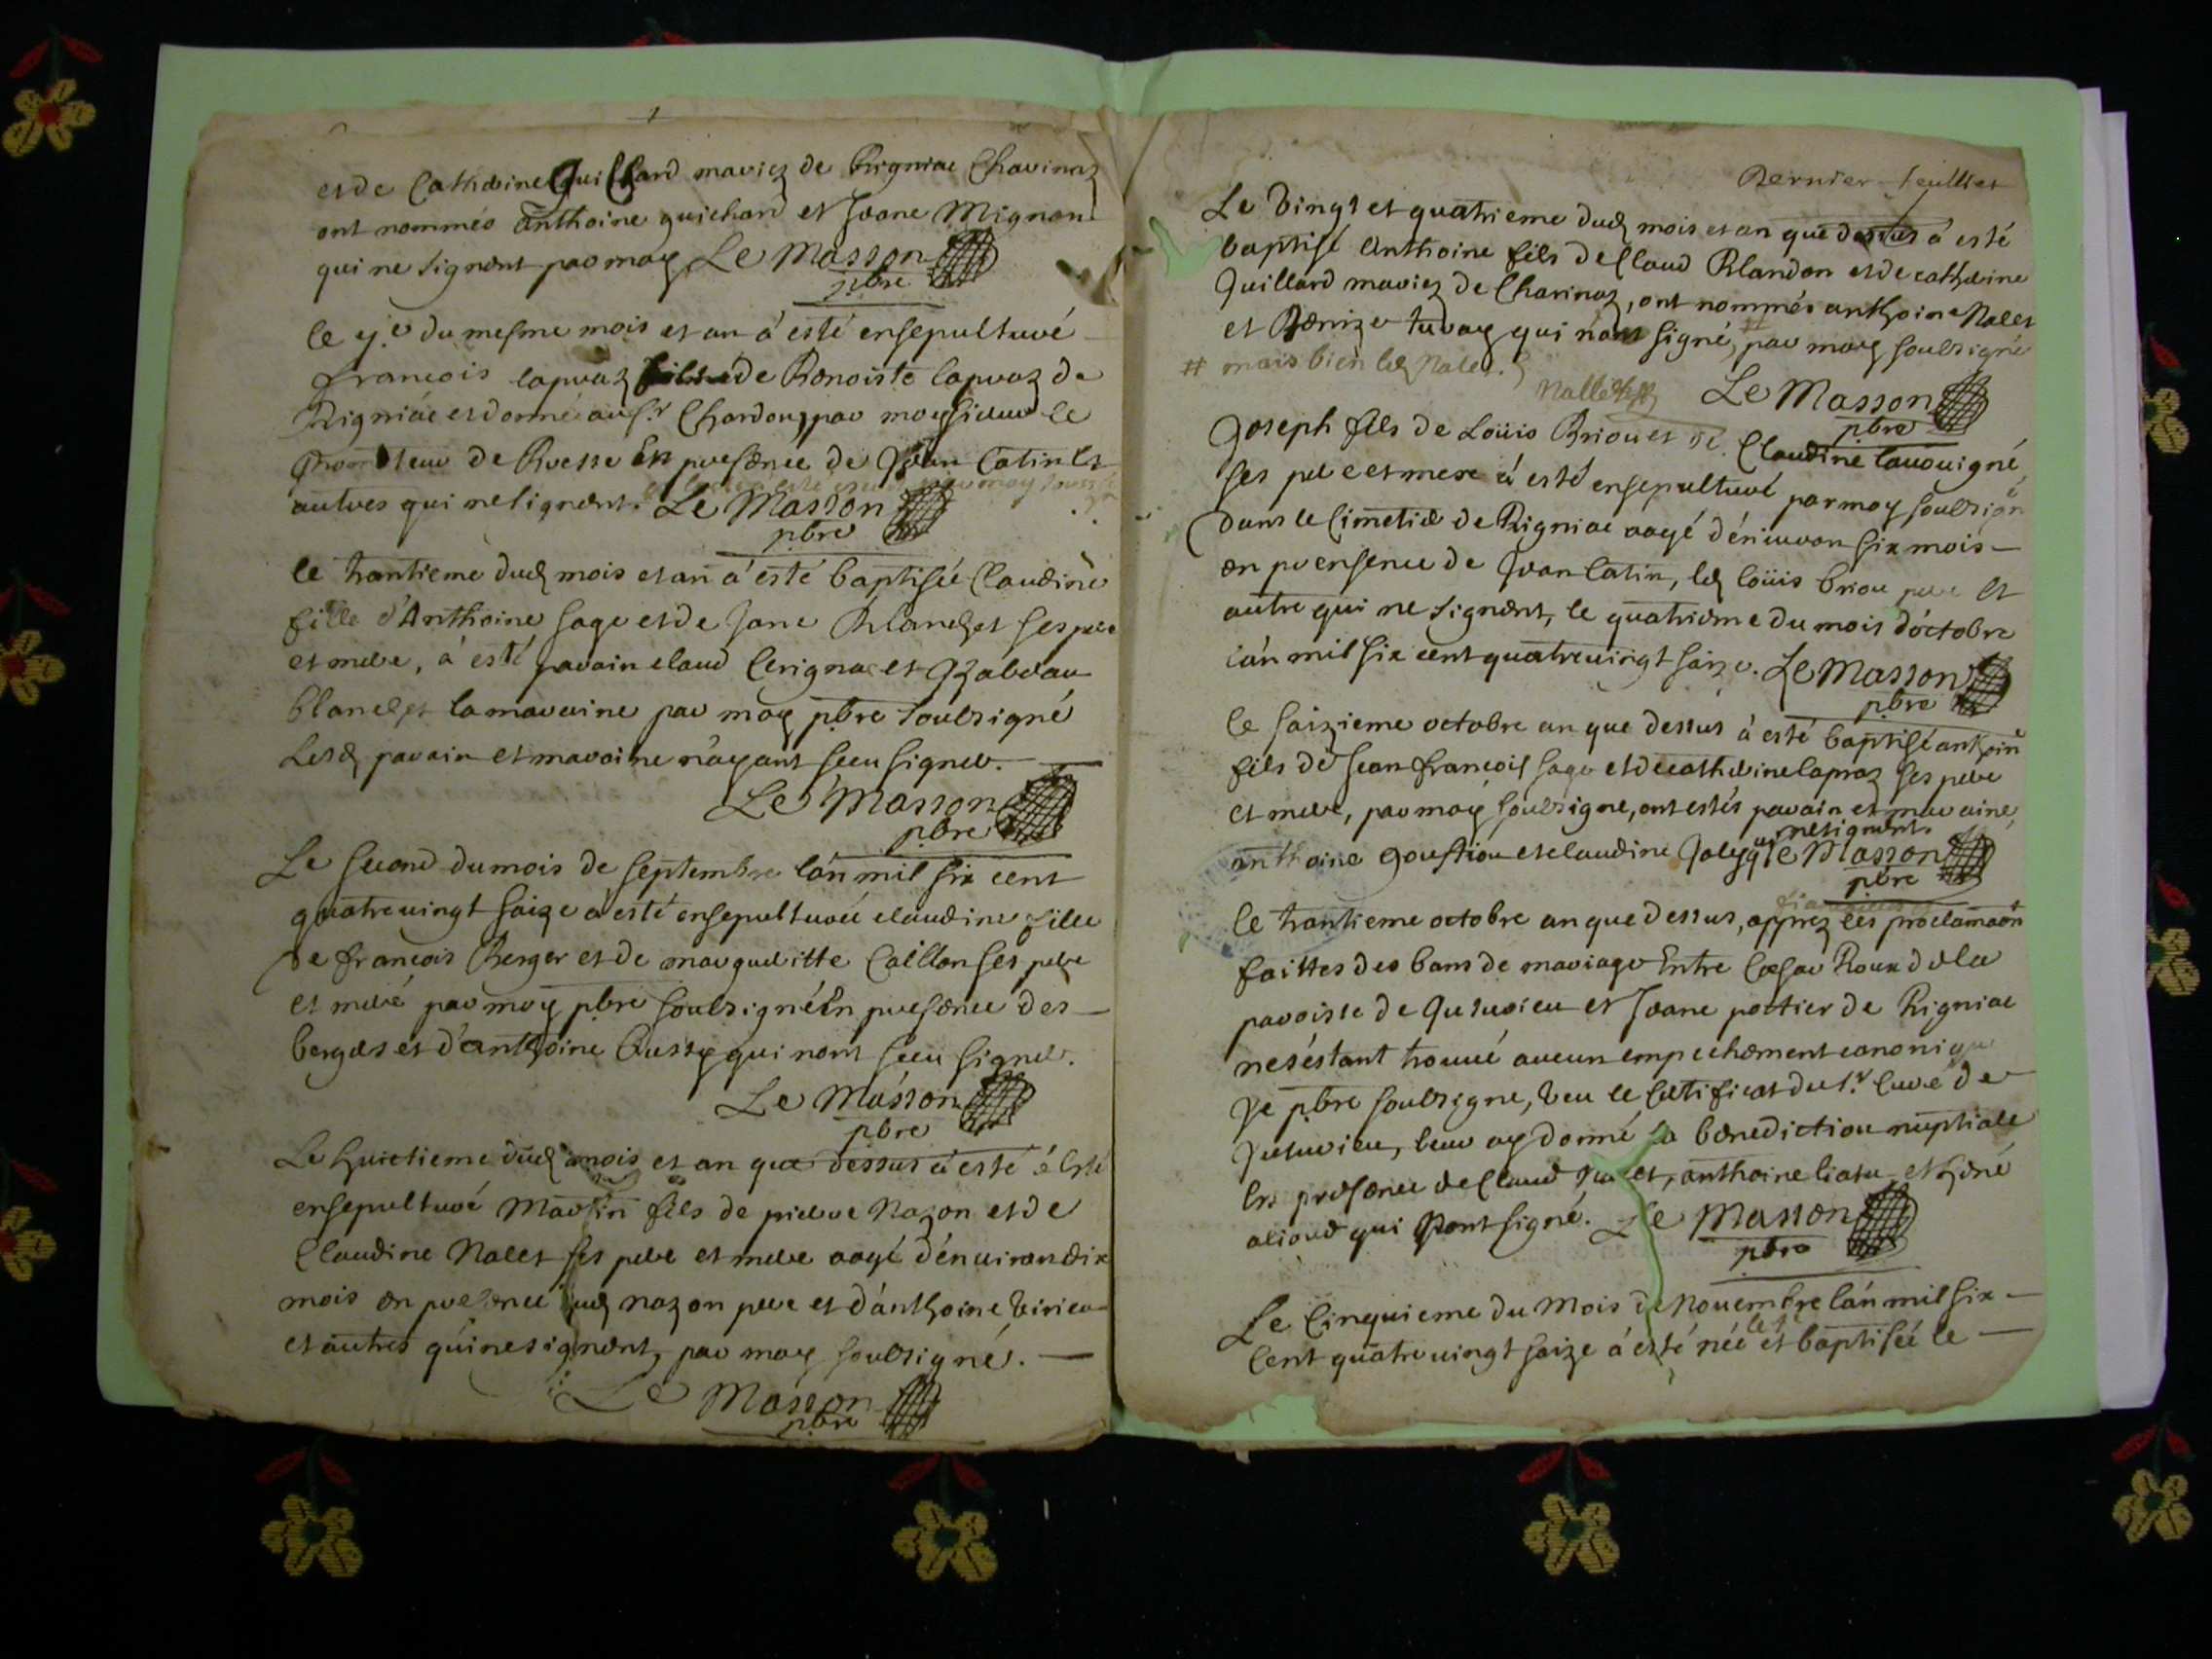 et de Catherine Guichard mariez de Rigniac Chavinaz
ont nommés anthoine guichard et Jeane Mignon
qui ne signent par moy Le Masson
pbre
le du mesme mois et an à esté ensepulturé
francois lapraz de Benoiste lapraz de
Rigniac et donné au Sr Chardon, par le
de en presence de Jean Catin et
autres qui ne signent. Le Masson
pbre
le trantieme dud mois et an à esté baptisée Claudine
fille d'Anthoine Sage et de Jane Blanchet ses pere
et mere, à esté parain claud Cerignac et Yzabeau
blanchet la maraine par moy pbre soubsigné
Lesd parain et maraine n'ayant sceu signer.
Le Masson
pbre
Le second du mois de septembre l'an mil six cent
quatrevingt saize à esté ensepulturée claudine fille
de francois Berger et de margueritte Caillon ses pere
et mere par moy pbre soubsigné En presence des
bergers et d'anthoine Bussy qui n'ont sceu signer.
Le Masson
pbre
Le huictieme dud mois et an que dessus à esté à esté
ensepulturé Martin fils de pierre Nazon et de
Claudine Nalet ses pere et mere aagé d'environ dix
mois en presence dud nazon pere et d'anthoine
et autres qui ne signent, par moy soubsigné.
Le Masson
pbre
Dernier feuillet
Le vingt et quatrieme dud mois et an que dessus à esté
baptisé Anthoine fils de Claud Blandon et de catherine
Guillard mariez de Charinaz, ont nommés anthoine Nalet
et Benize qui n'ont signé, # par moy soubsigné
# mais bien led Nalet.
Le Masson
pbre
Joseph fils de Loüis Briou et de Claudine
ses pere et mere à esté ensepulturé par moy soubsigné
dans le Cimetiere de Rigniac aagé d'environ six mois
en presence de Jean Catin, led loüis briou pere et
autre qui ne signent, le quatrieme du mois d'octobre
l'an mil six cent quatrevingt saize. Le Masson
pbre
le saizieme octobre an que dessus à esté baptisé anthoine
fils de Jean francois Sage et de catherine lapraz ses pere
et mere, par moy soubsigne, ont estés parain et maraine,
anthoine goustiou et claudine Joly qui ne signent. Le Masson
pbre
le trantieme octobre an que dessus, apprez les proclamaon
faittes des bans de mariage Entre Cesar Roux de la
paroisse de Jujurieu et Jeane portier de Rigniac
ne s'estant trouvé aucun empechement canonique
Je pbre soubsigne, veu le certificat du Sr Curé de
Jujurieu, leur ay donné la benediction nuptiale
En presence de Claud anthoine liatu et
qui n'ont signé. Le Masson
pbre
Le Cinquieme du Mois de Novembre l'an mil six
Cent quatrevingt saize à esté née et baptisée le